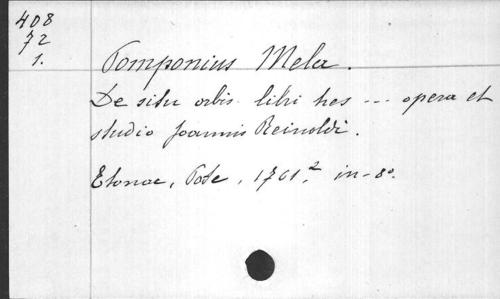 408
72
1.
Pomponius Mela.
De situ orbis libri tres ... opera et
studio Joannis Reinoldi.
Etonae, Pote, 1761.² in-8°.